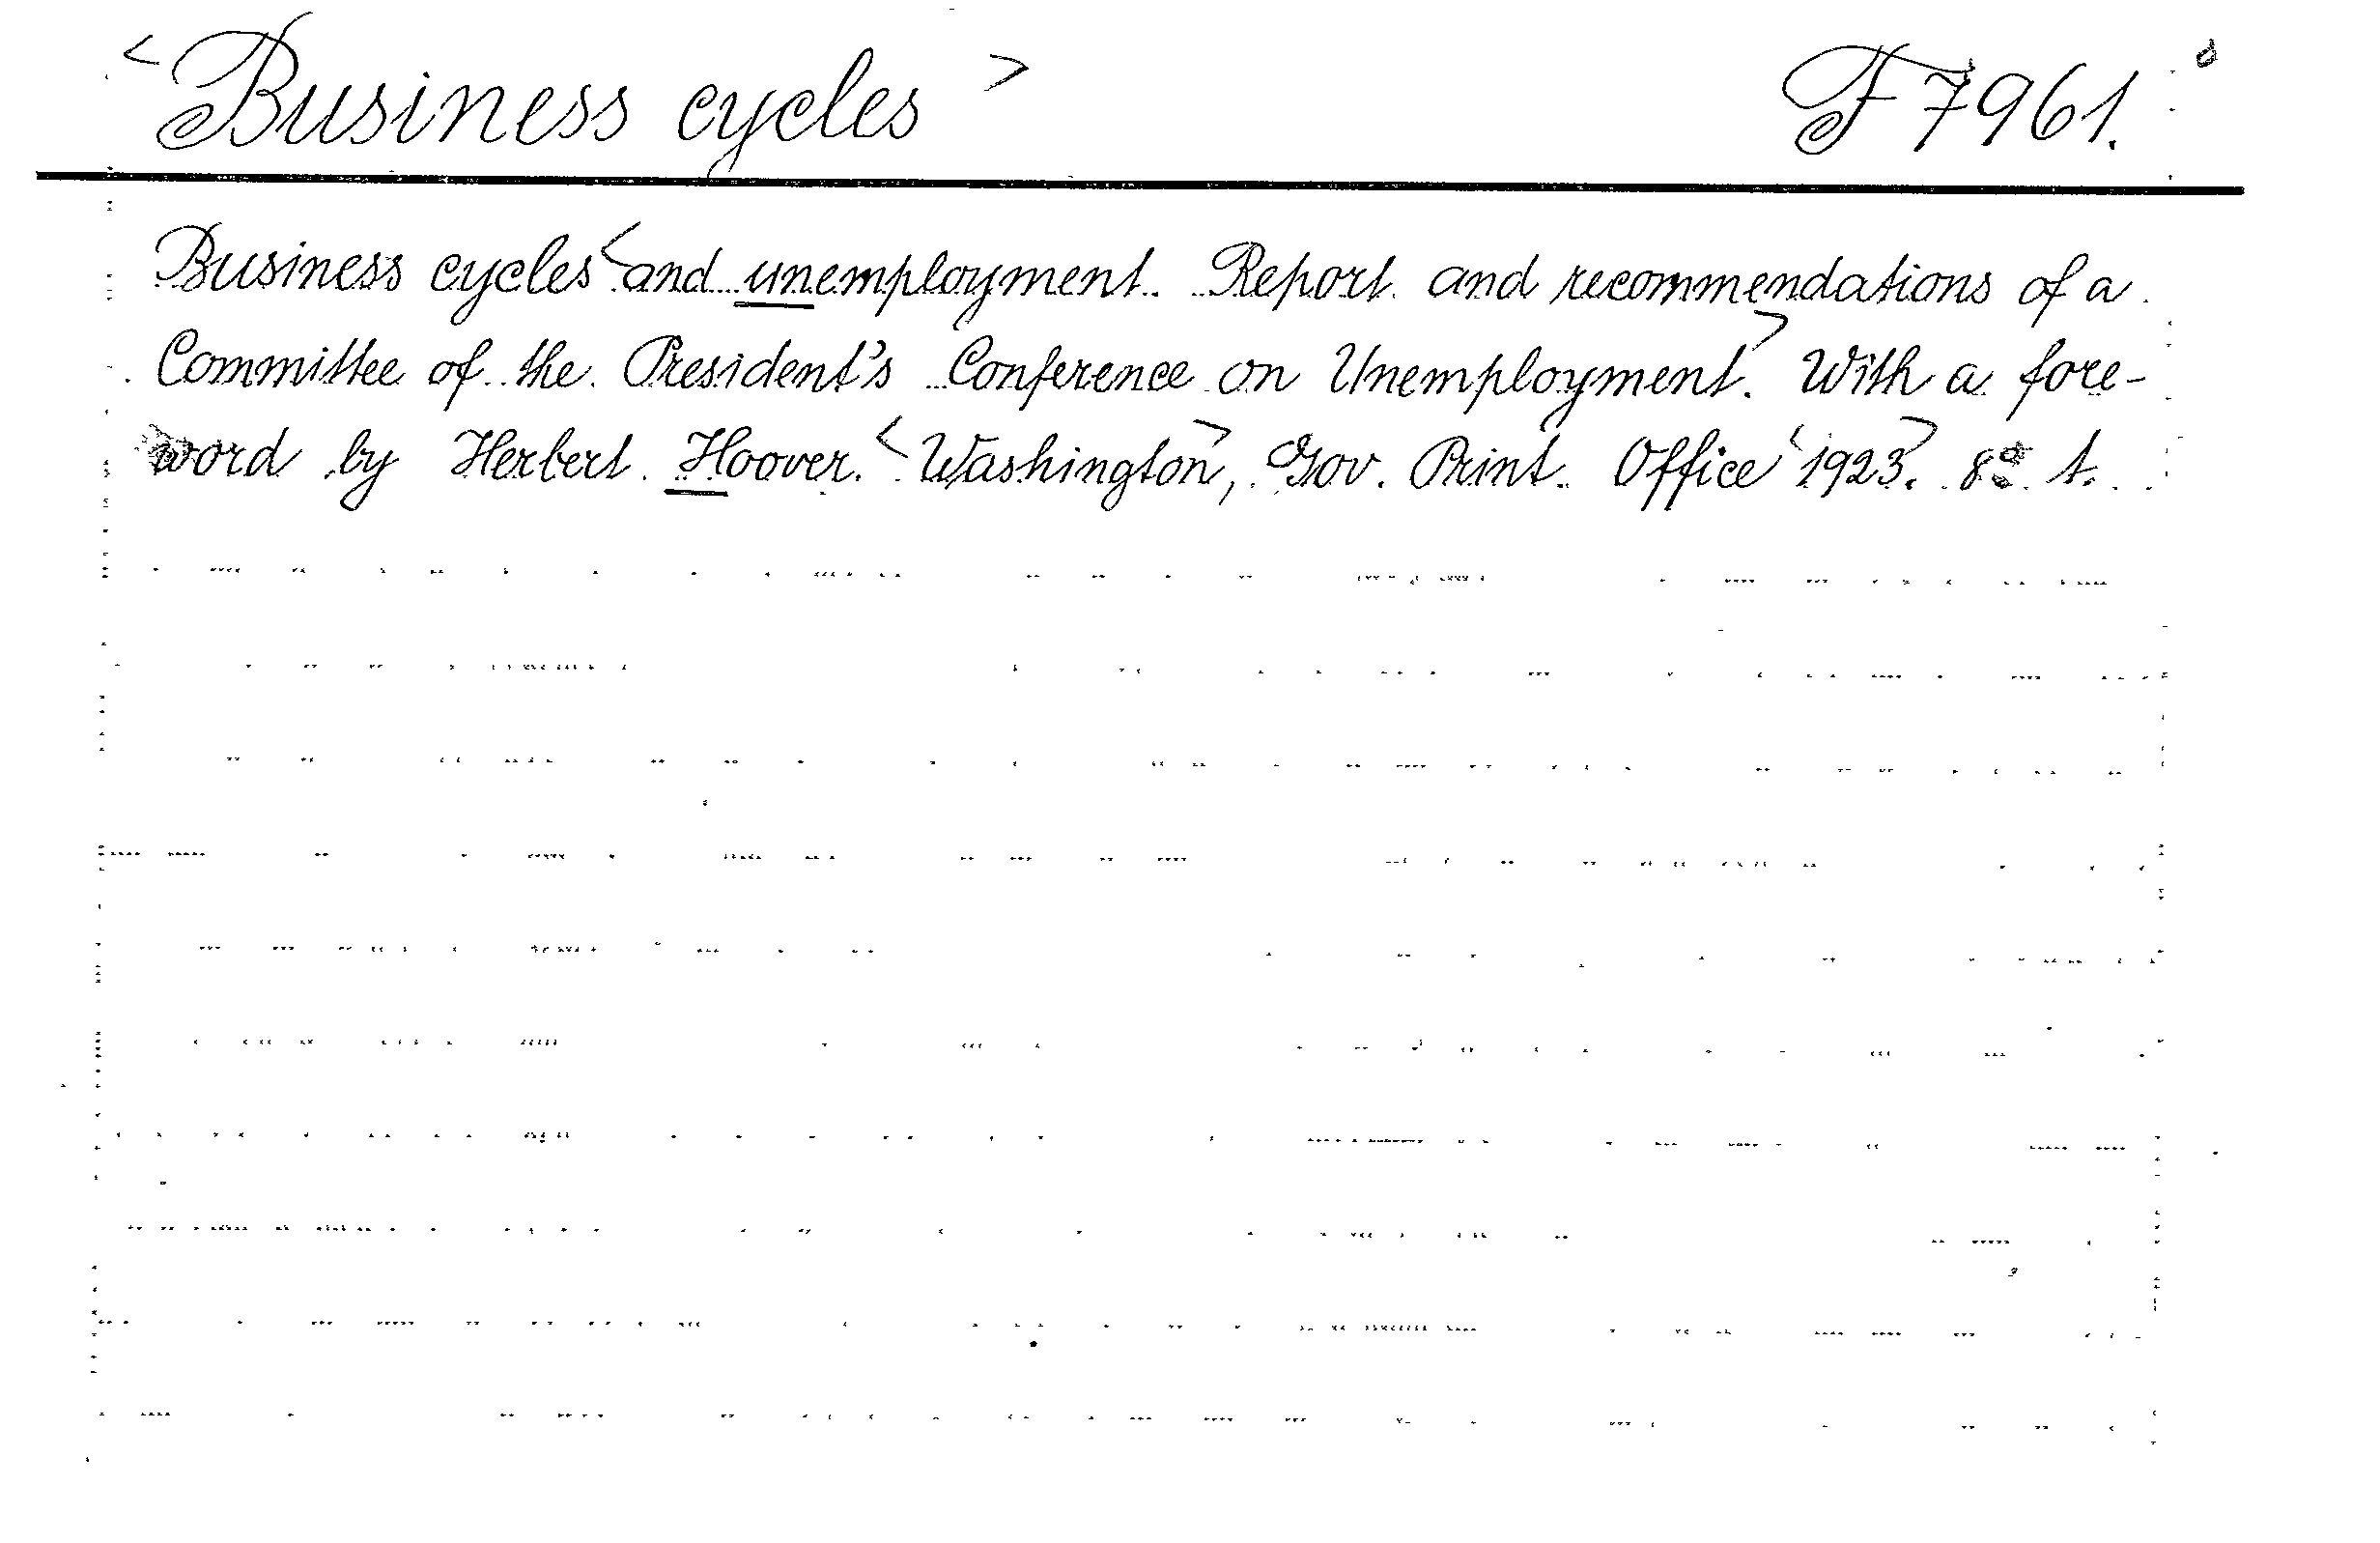 <Business cycles> F 7961.
Business cycles <and unemployment. Report and recommendations of a
Committee of the President's Conference on Unemployment.> With a fore-
word by Herbert Hoover. <Washington>, Gov. Print. Office <1923>. 8º. t.